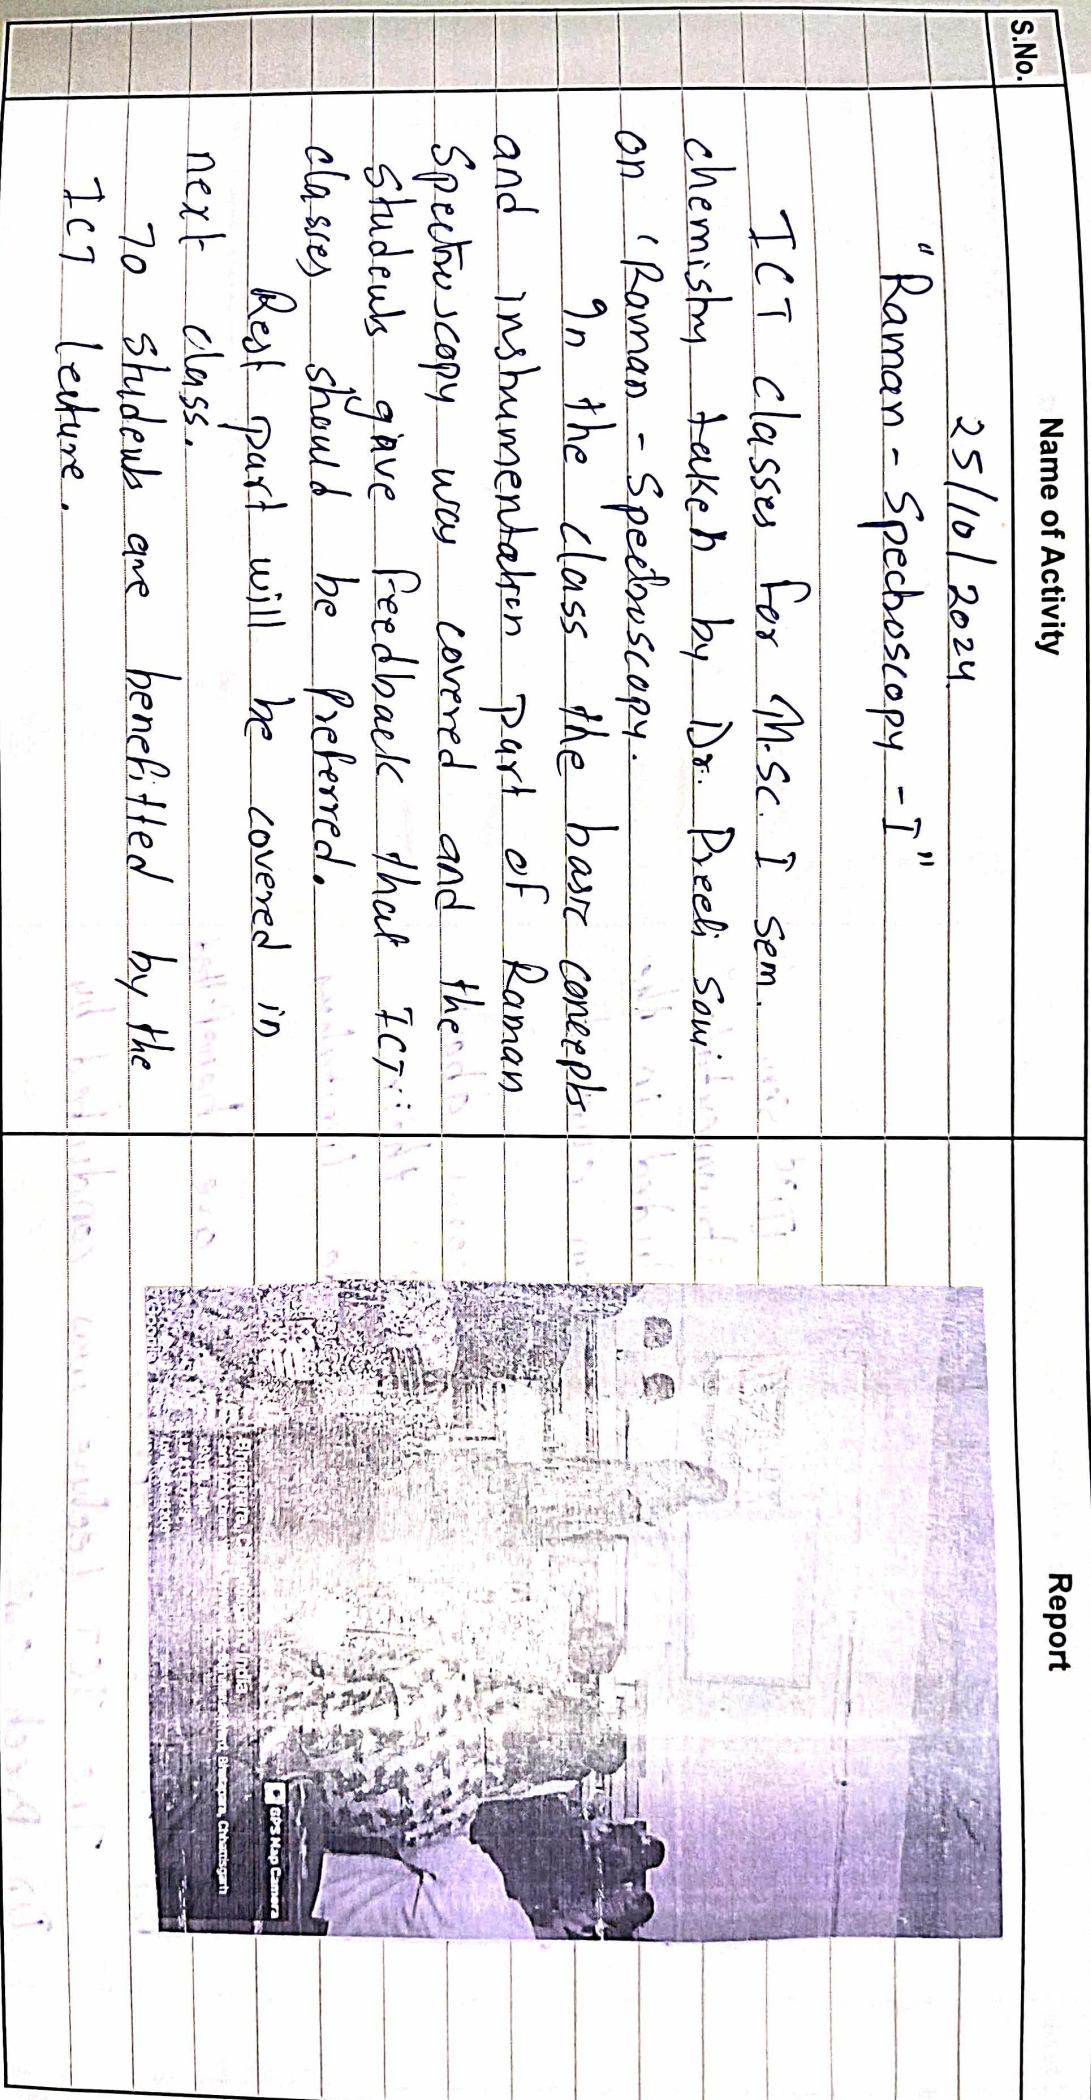 S.No. Name of Activity Report
25/10/2024
"Raman - Spectroscopy - I"
ICT classes for M.Sc. I sem.
chemistry taken by Dr. Preeti Soni
on 'Raman - Spectroscopy.
In the class the basic concepts
and instrumentation part of Raman
Spectroscopy was covered and the
students gave feedback that ICT
classes should be preferred.
Rest part will be covered in
next class.
70 students are benefitted by the
ICT lecture.
GPS Map Camera
India
Chhattisgarh